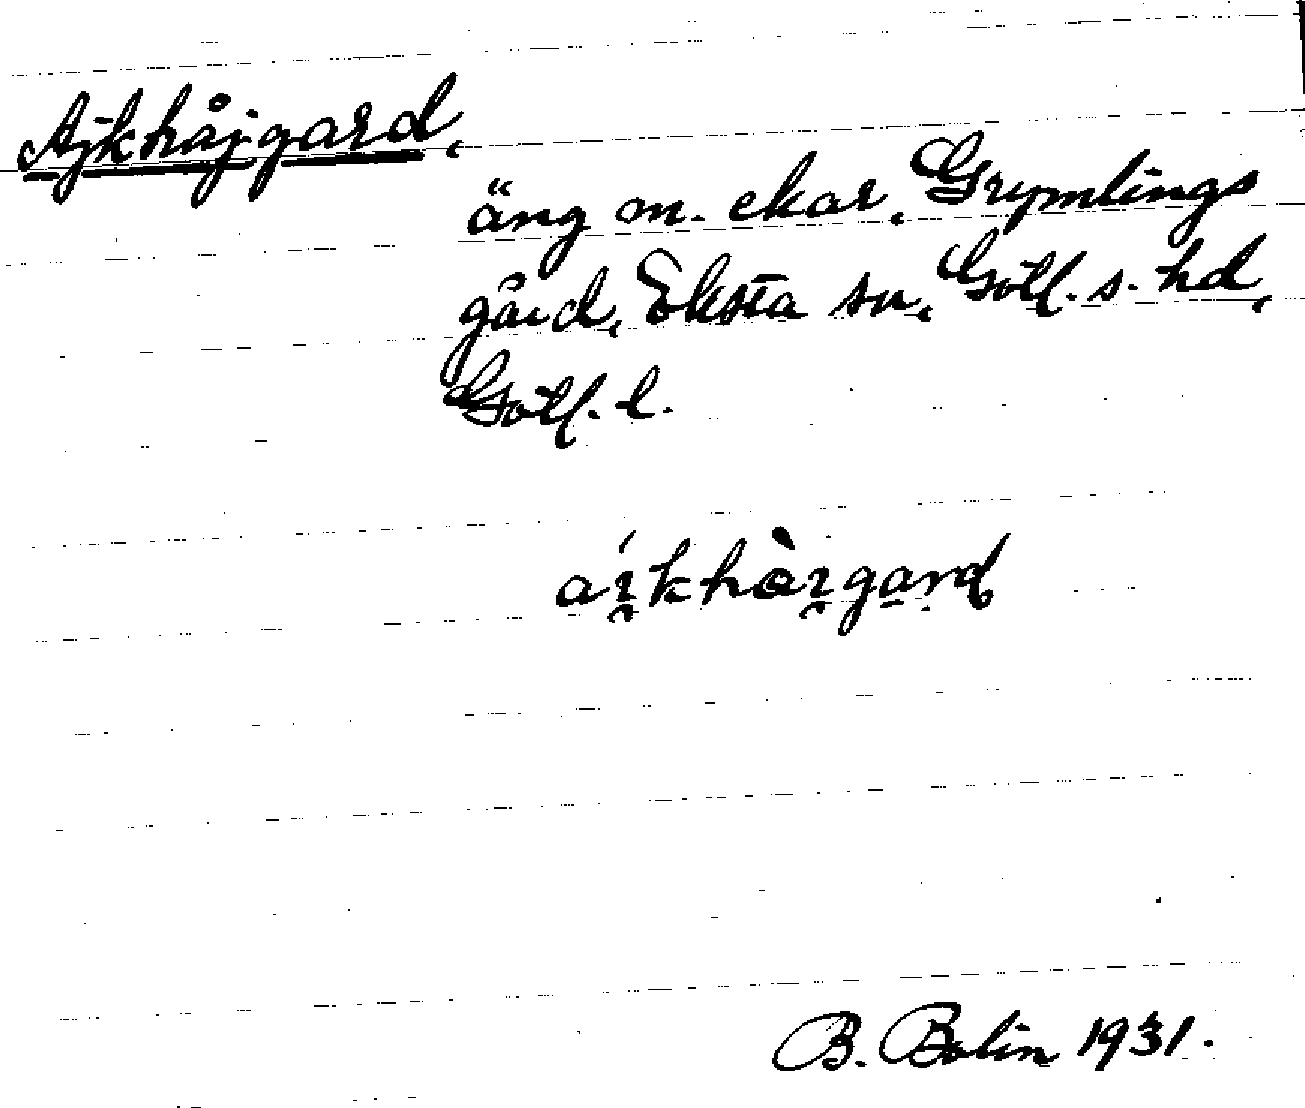 Ajkhåjgard,
äng m. ekar, Grymlings
gård, Eksta sn, Gotl. s. hd,
Gotl. l.
aı̯́khòı̯ga̠ṛd
B. Bolin 1931.